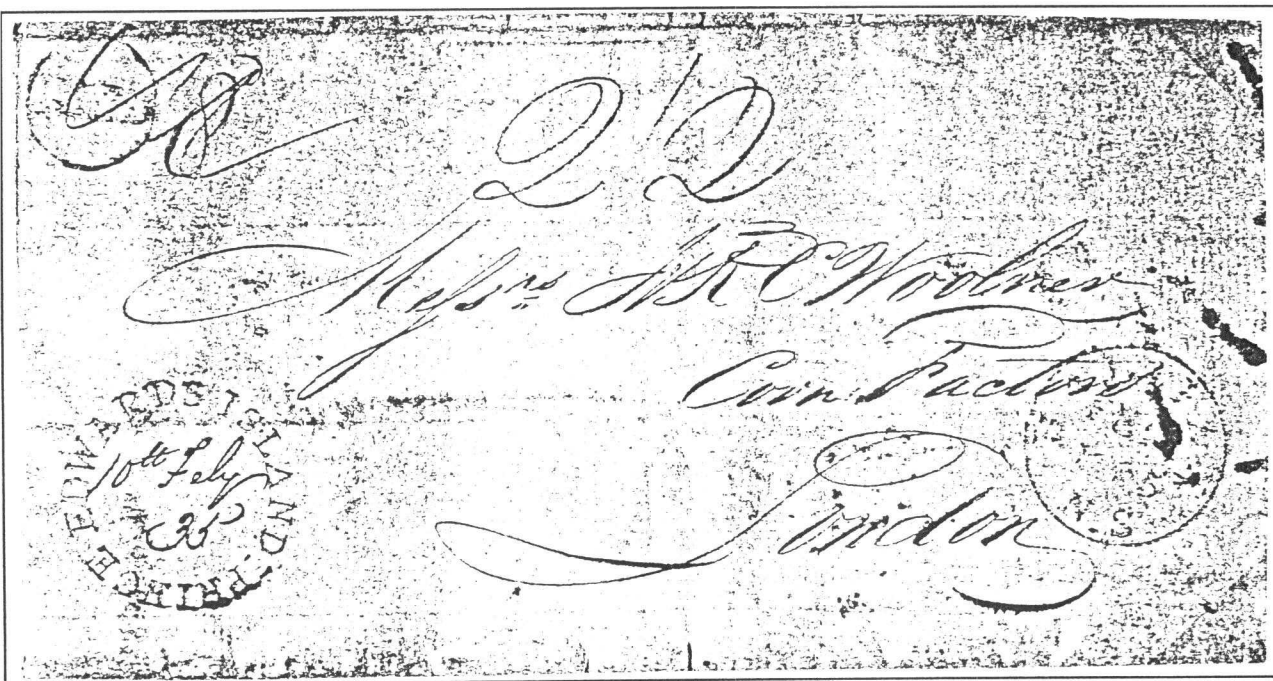 2/2
Messrs W R C Woolner
Corn Factors
London
PRINCE EDWARDS ISLAND
10th Feby
35